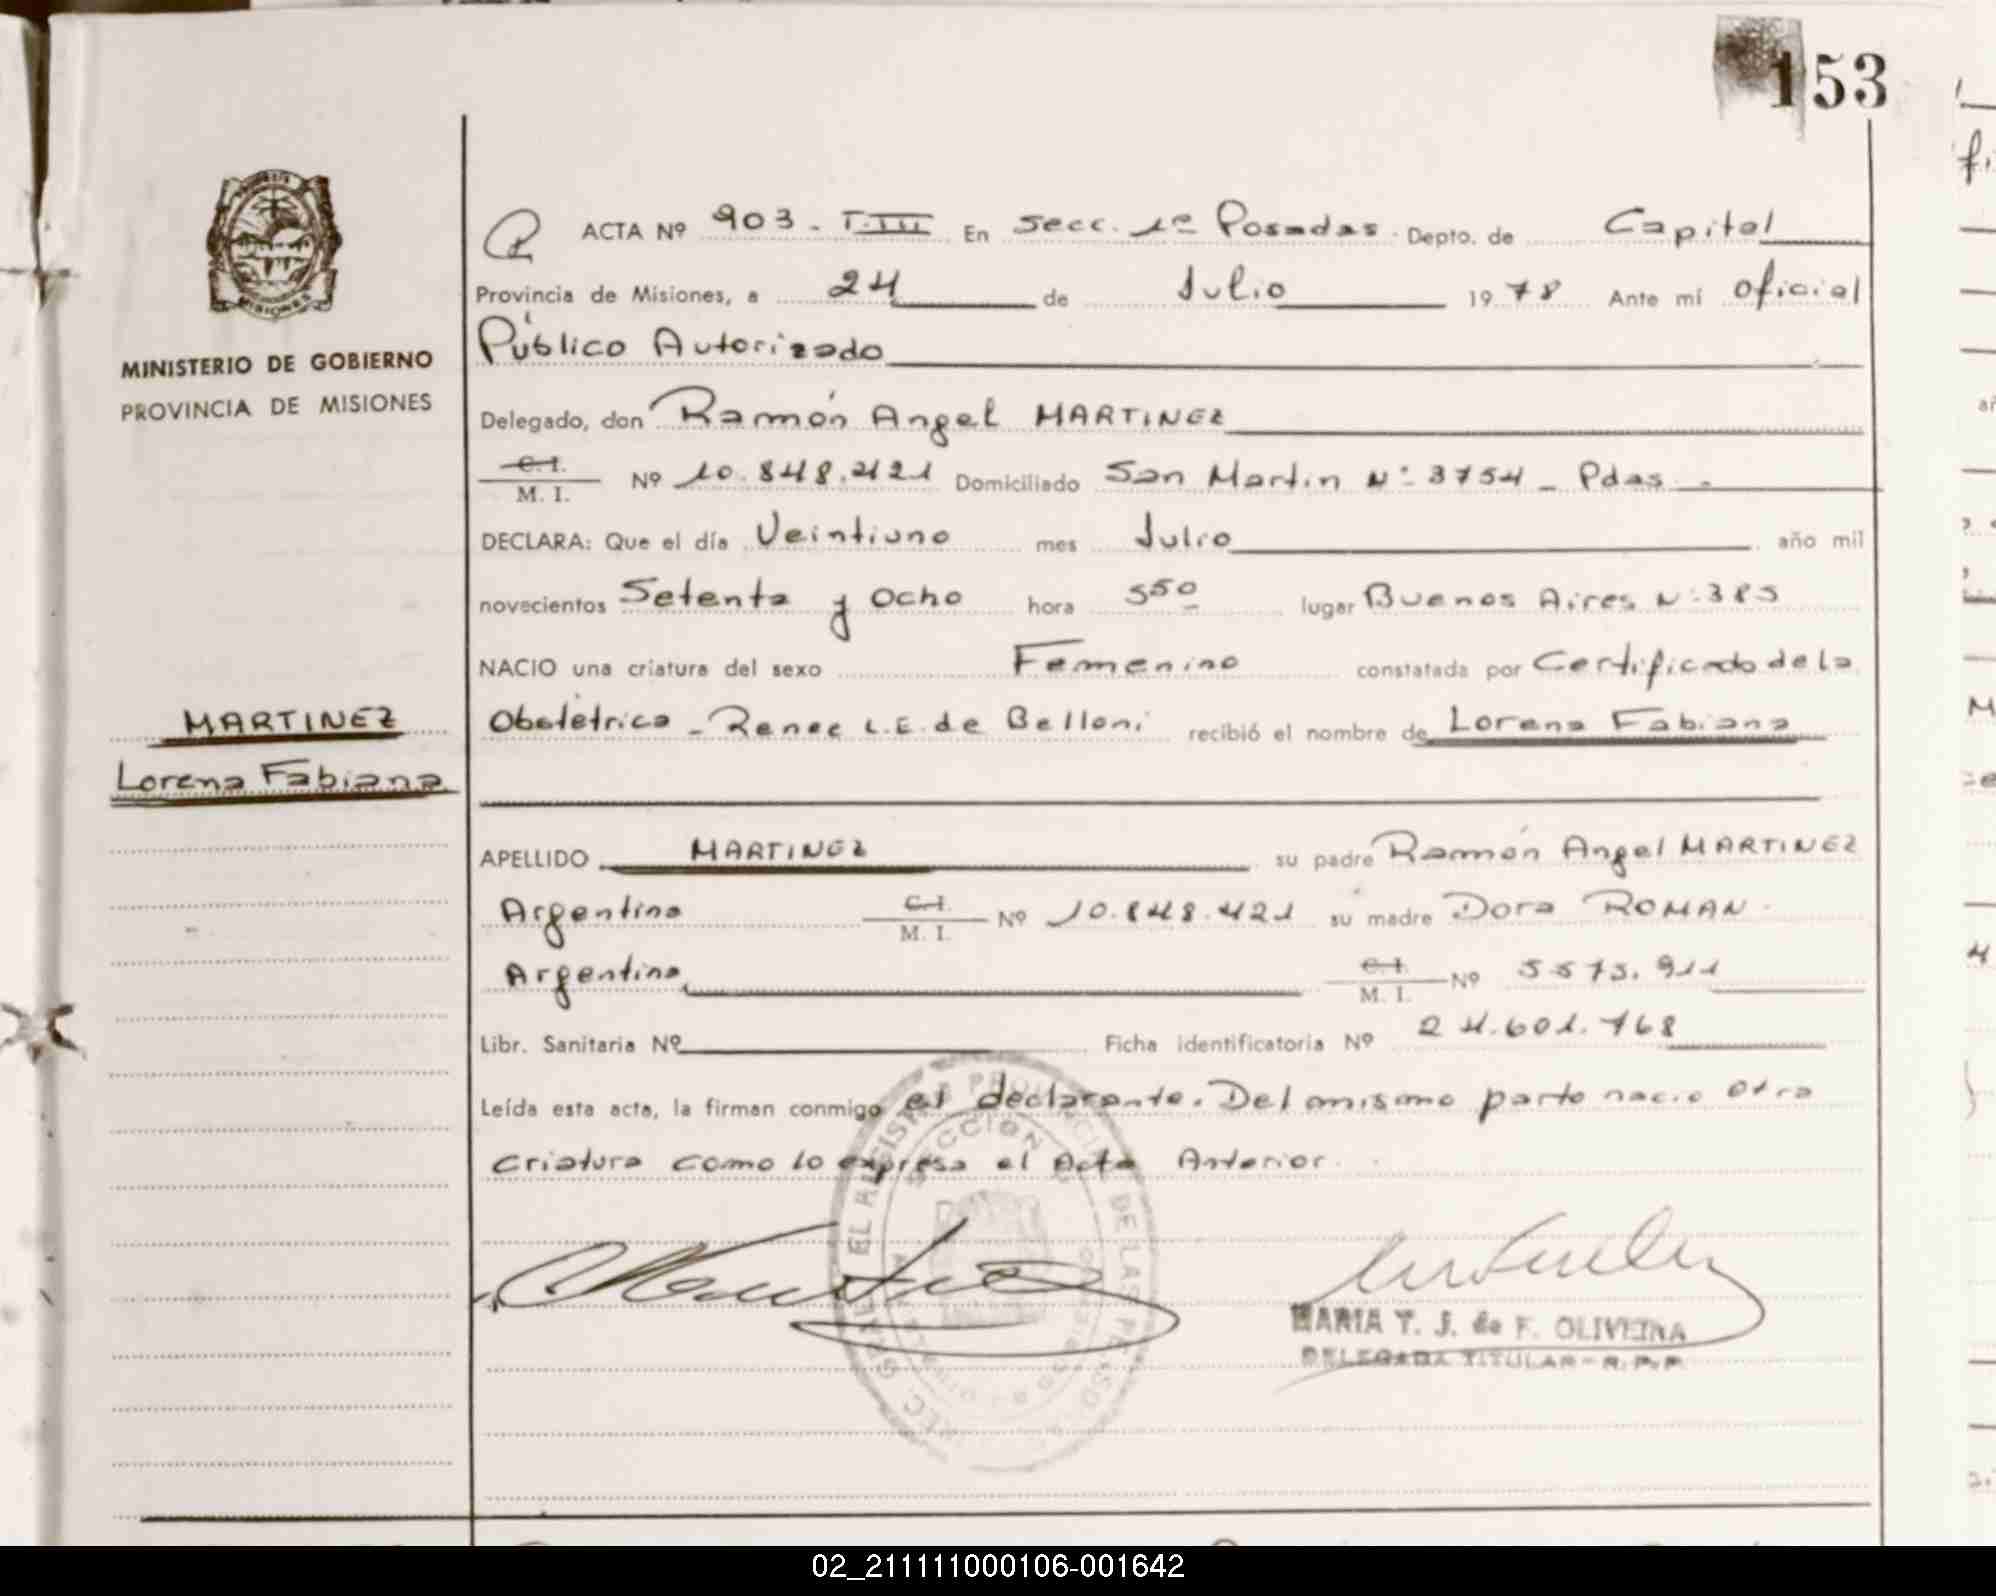 153
ACTA Nº 903 - T.III En Secc. 1ª Posadas. Depto. de Capital
Provincia de Misiones, a 24 de Julio 1978 Ante mí oficial
Público Autorizado
Delegado, don Ramón Angel MARTINEZ
C.I. M. I. Nº 10.848.421 Domiciliado San Martin Nº 3754 - Pdas -
DECLARA: Que el día Veintiuno mes Julio año mil
novecientos Setenta y Ocho hora 5⁵⁰ lugar Buenos Aires Nº 385
NACIO una criatura del sexo Femenino constatada por Certificado de la
Obstétrica - Renee L.E. de Belloni recibió el nombre de Lorena Fabiana
APELLIDO MARTINEZ su padre Ramón Angel MARTINEZ
Argentino C.I. M. I. Nº 10.848.421 su madre Dora ROMAN.
Argentina, C.I. M. I. Nº 5575.911
Libr. Sanitaria Nº Ficha identificatoria Nº 24.601.768
Leída esta acta, la firman conmigo el declarante. Del mismo parto nacio otra
criatura como lo expresa el Acta Anterior.
MARIA T. J. de F. OLIVEIRA
DELEGADA TITULAR - R.P.P.
MINISTERIO DE GOBIERNO
PROVINCIA DE MISIONES
MARTINEZ
Lorena Fabiana
02_211111000106-001642